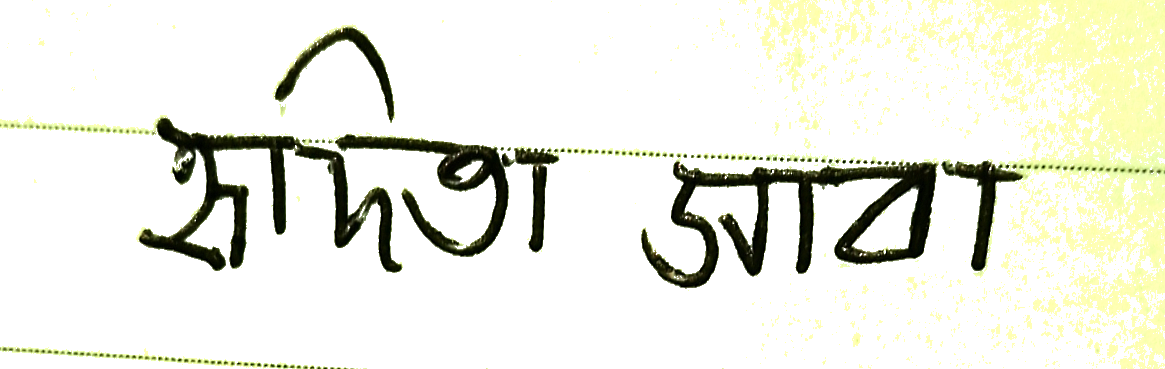 সদিতা জাবা